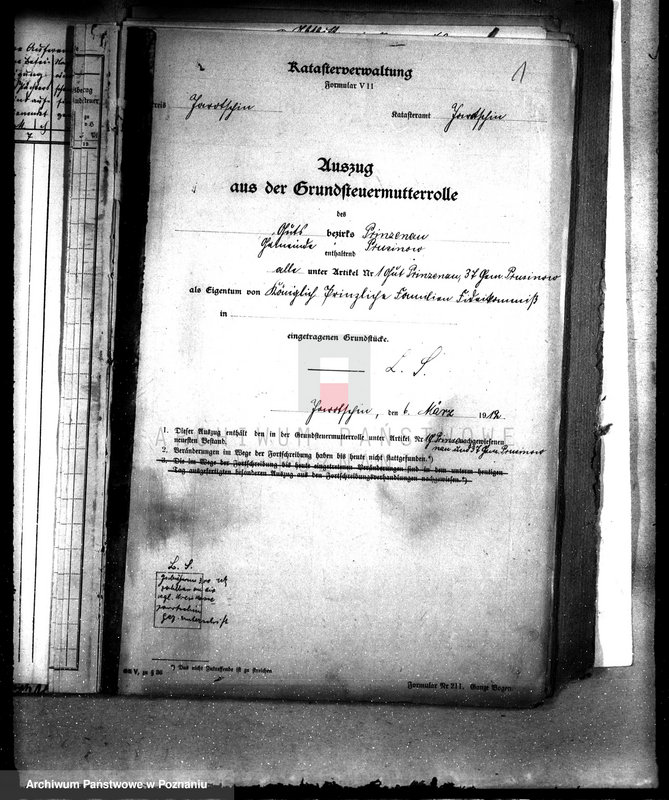 1
Katasterverwaltung
Formular V 11
Kreis Jarotschin
Katasteramt Jarotschin
Auszug
aus der Grundsteuermutterrolle
des
Guts bezirks Prinzenau
Gemeinde Prusinow
enthaltend
alle unter Artikel Nr 1 Gut Prinzenau, 37 Gem. Prusinow
als Eigentum von Königlich Prinzliche Familien Fideikommiß
in
eingetragenen Grundstücke.
L. S.
Jarotschin, den 6. März 1912.
1. Dieser Auszug enthält den in der Grundsteuermutterrolle unter Artikel Nr nachgewiesenen
neuesten Bestand. nau und 37 Gem. Prusinow
2. Veränderungen im Wege der Fortschreibung haben bis heute nicht stattgefunden.*)
3. Die im Wege der Fortschreibung bis heute eingetretenen Veränderungen sind in dem unterm heutigen
Tag ausgefertigten besonderen Auszug aus den Fortschreibungsverhandlungen nachgewiesen.*)
ARCHIWUM PAŃSTWOWE
L. S.
*) Das nicht Zutreffende ist zu streichen
Formular Nr 211. Ganze Bogen.
Archiwum Państwowe w Poznaniu